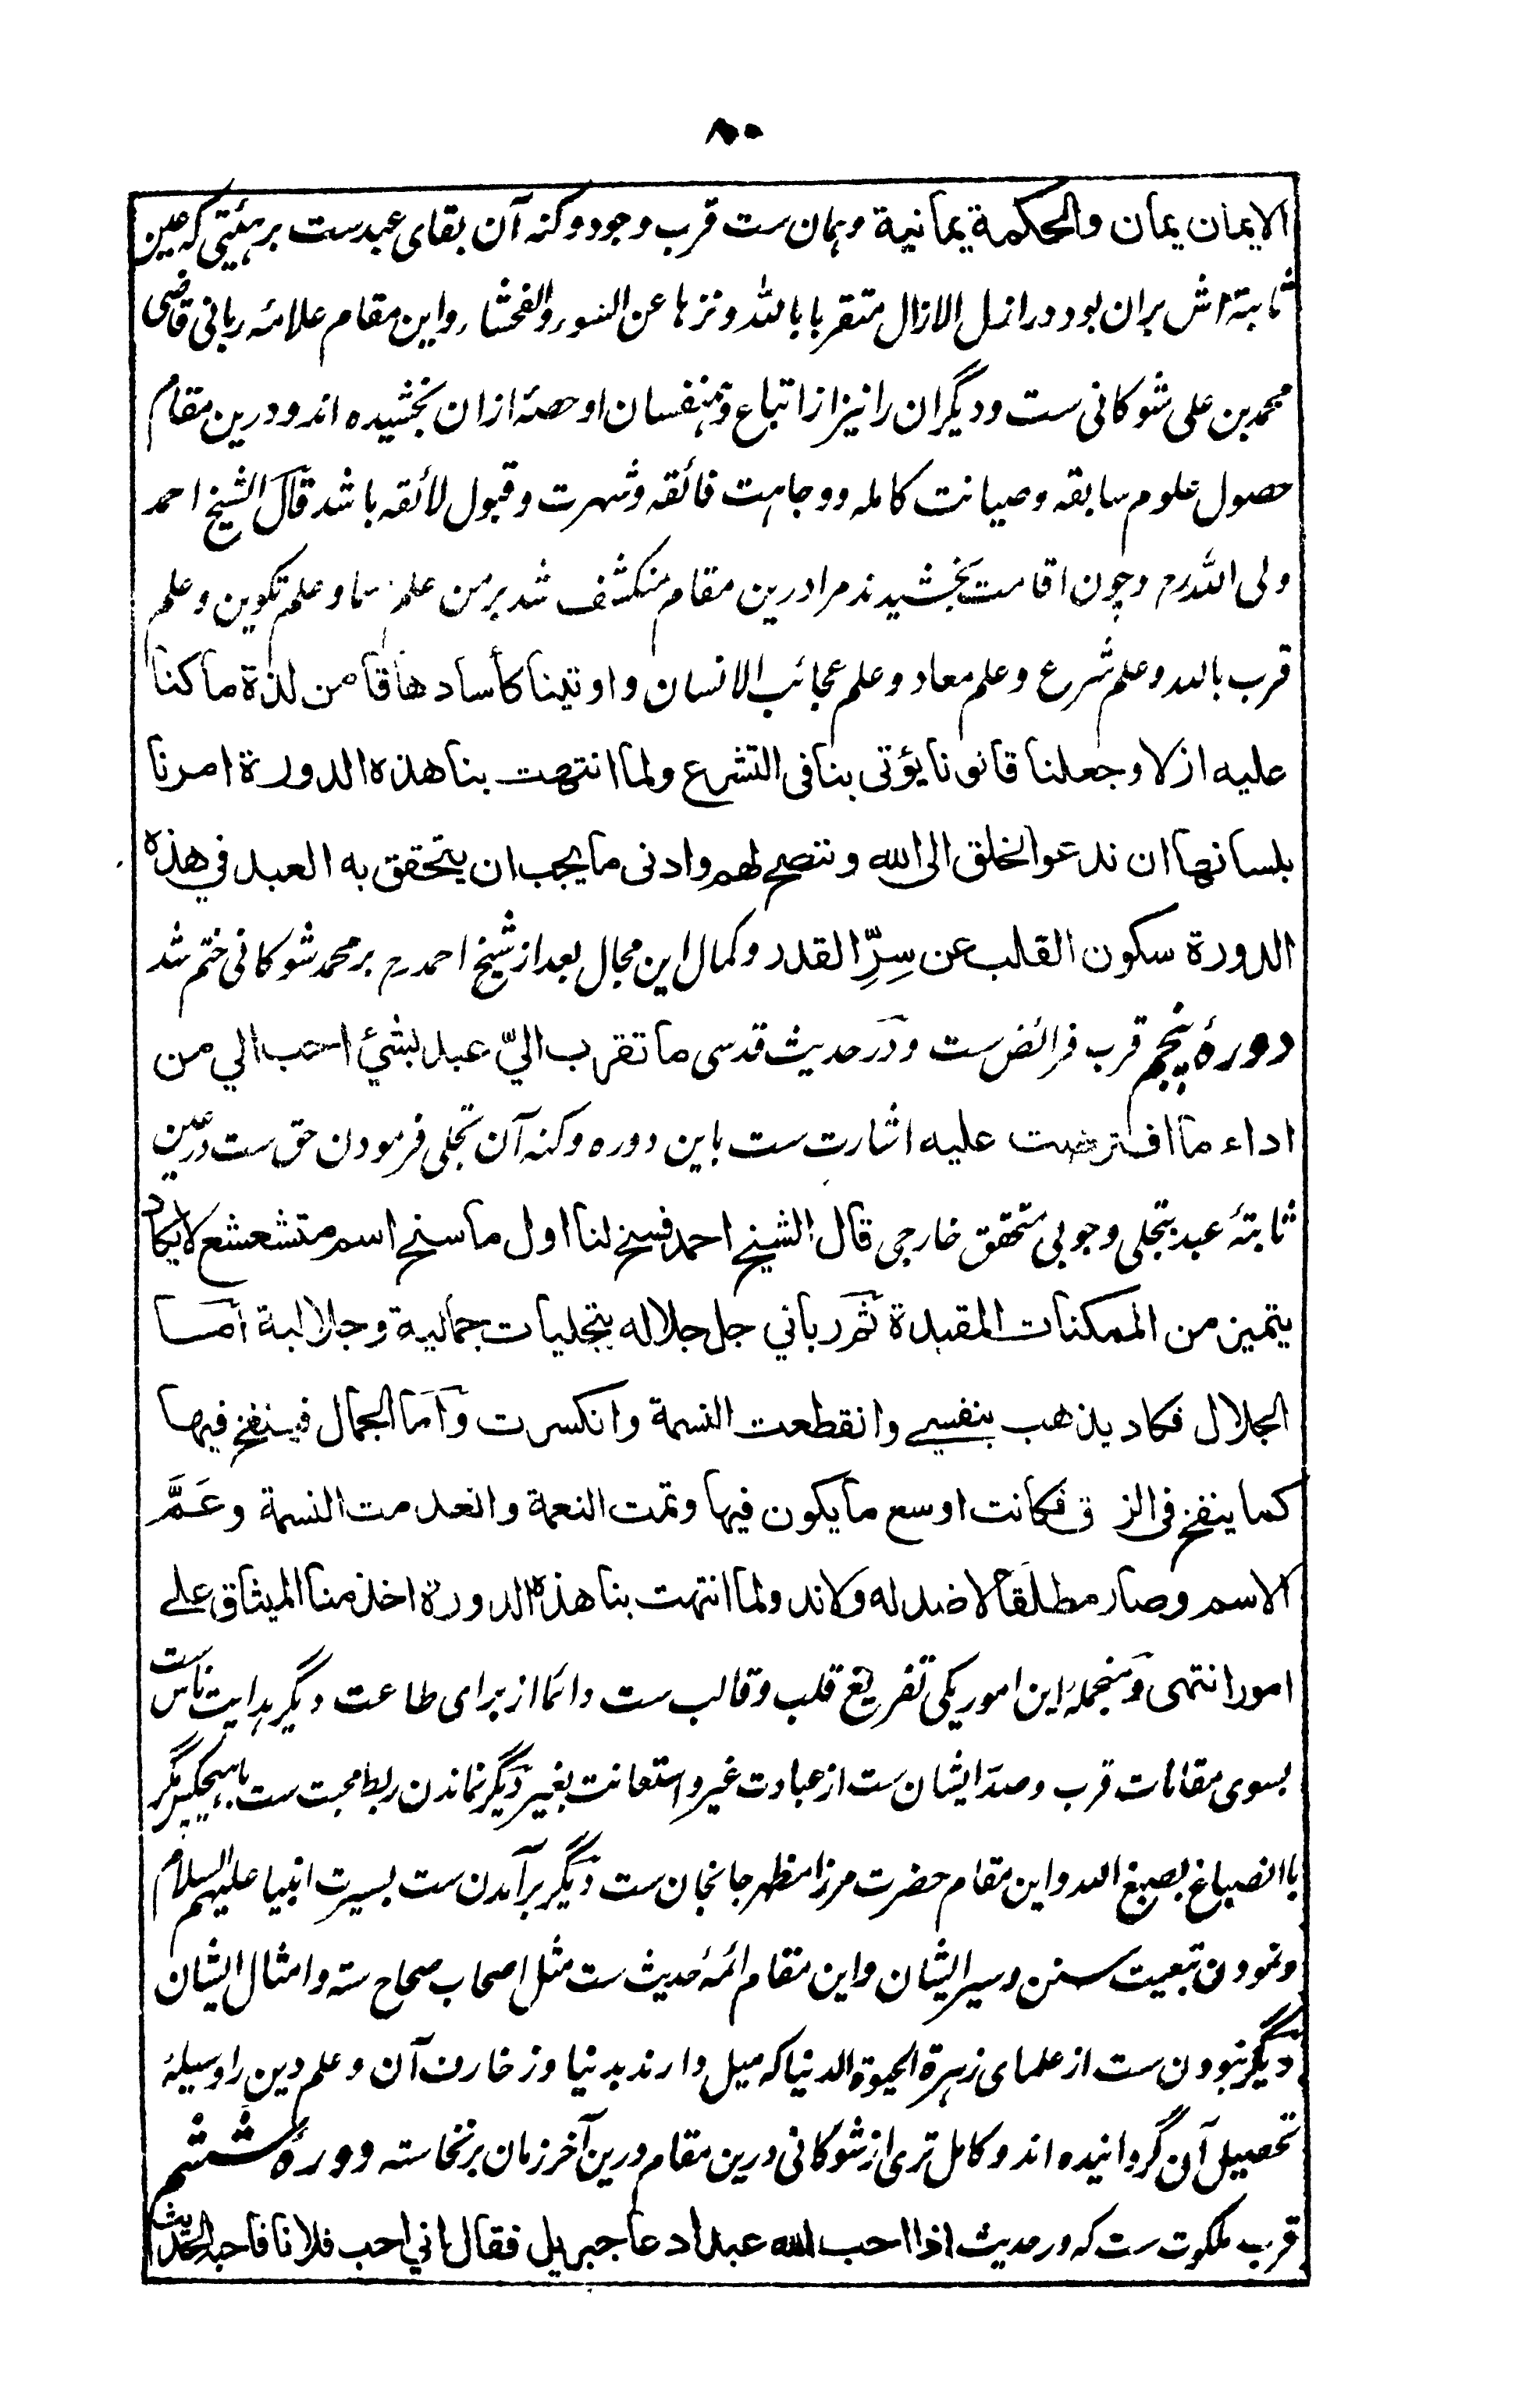 ۸۰
الایمان یمان والحکمة یمانیة وہمان ست قرب وجود وکنہ آن بقای عبدست برہیئتی کہ عین
ثابتہ اش بران بود در ازل الازال متقربا باللہ ونزہا عن السوء والفحشاء واین مقام علامۂ ربانی قاضی
محمد بن علی شوکانی ست ودیگران را نیز از اتباع وہمنفسان او حصۂ ازان بخشیدہ اند ودرین مقام
حصول علوم سابقہ وصیانت کاملہ ووجاہت فائقہ وشہرت وقبول لائقہ باشد قال الشیخ احمد
ولی اللہ رح وچون اقامت بخشیدند مرا درین مقام منکشف شد بر من علم سما وعلم تکوین وعلم
قرب باللہ وعلم شرع وعلم معاد وعلم عجائب الانسان واوتینا کأسا دھاقا من لذة ما کنا
علیه ازلا وجعلنا قانونا یؤتی بنا فی التشرع ولما انتهت بنا هذه الدورة امرنا
بلسانها ان ندعو الخلق الی الله وننصح لهم وادنی ما یجب ان یتحقق به العبد فی هذه
الدورة سکون القلب عن سِرِّ القدر وکمال این مجال بعد از شیخ احمد رح بر محمد شوکانی ختم شد
دورۂ پنجم قرب فرائض ست ودر حدیث قدسی ما تقرب الیّ عبد بشیٔ احب الی من
اداء ما افترضت علیه اشارت ست باین دورہ وکنہ آن تجلی فرمودن حق ست در عین
ثابتۂ عبد بتجلی وجوبی متحقق خارجی قال الشیخ احمد فسنح لنا اول ما سنح اسم متشعشع لا یکاد
یتمیز من الممکنات المقیدة ثم ربانی جل جلاله بتجلیات جمالیة وجلالیة اما
الجلال فکاد یذهب بنفسی وانقطعت النسمة وانکسرت واما الجمال فینفخ فیها
کما ینفخ فی الزق فکانت اوسع ما یکون فیها وتمت النعمة وانعدمت النسمة وعَمَّ
الاسم وصار مطلقا لا ضد له ولا ند ولما انتهت بنا هذه الدورة اخذ منا المیثاق علی
امور انتهی ومنجملۂ این امور یکی تفریغ قلب وقالب ست دائما از برای طاعت دیگر ہدایت ناس ست
بسوی مقامات قرب وصد ایشان ست از عبادت غیر واستعانت بغیر دیگر نماندن ربط محبت ست باہیچکس مگر
با انصباغ بصبغ اللہ واین مقام حضرت مرزا مظہر جانجان ست دیگر برآمدن ست بسیرت انبیا علیہم السلام
ونمودن تبعیت سنن وسیر ایشان واین مقام ائمۂ حدیث ست مثل اصحاب صحاح ستہ وامثال ایشان
دیگر نبودن ست از علمای زہرۃ الحیوۃ الدنیا کہ میل دارند بدنیا وزخارف آن وعلم دین را وسیلۂ
تحصیل آن گردانیدہ اند وکامل تری از شوکانی درین مقام درین آخر زمان برنخاستہ دورۂ ششم
قرب ملکوت ست کہ در حدیث اذا احب الله عبدا دعا جبریل فقال انی احب فلانا فاحبه الحدیث